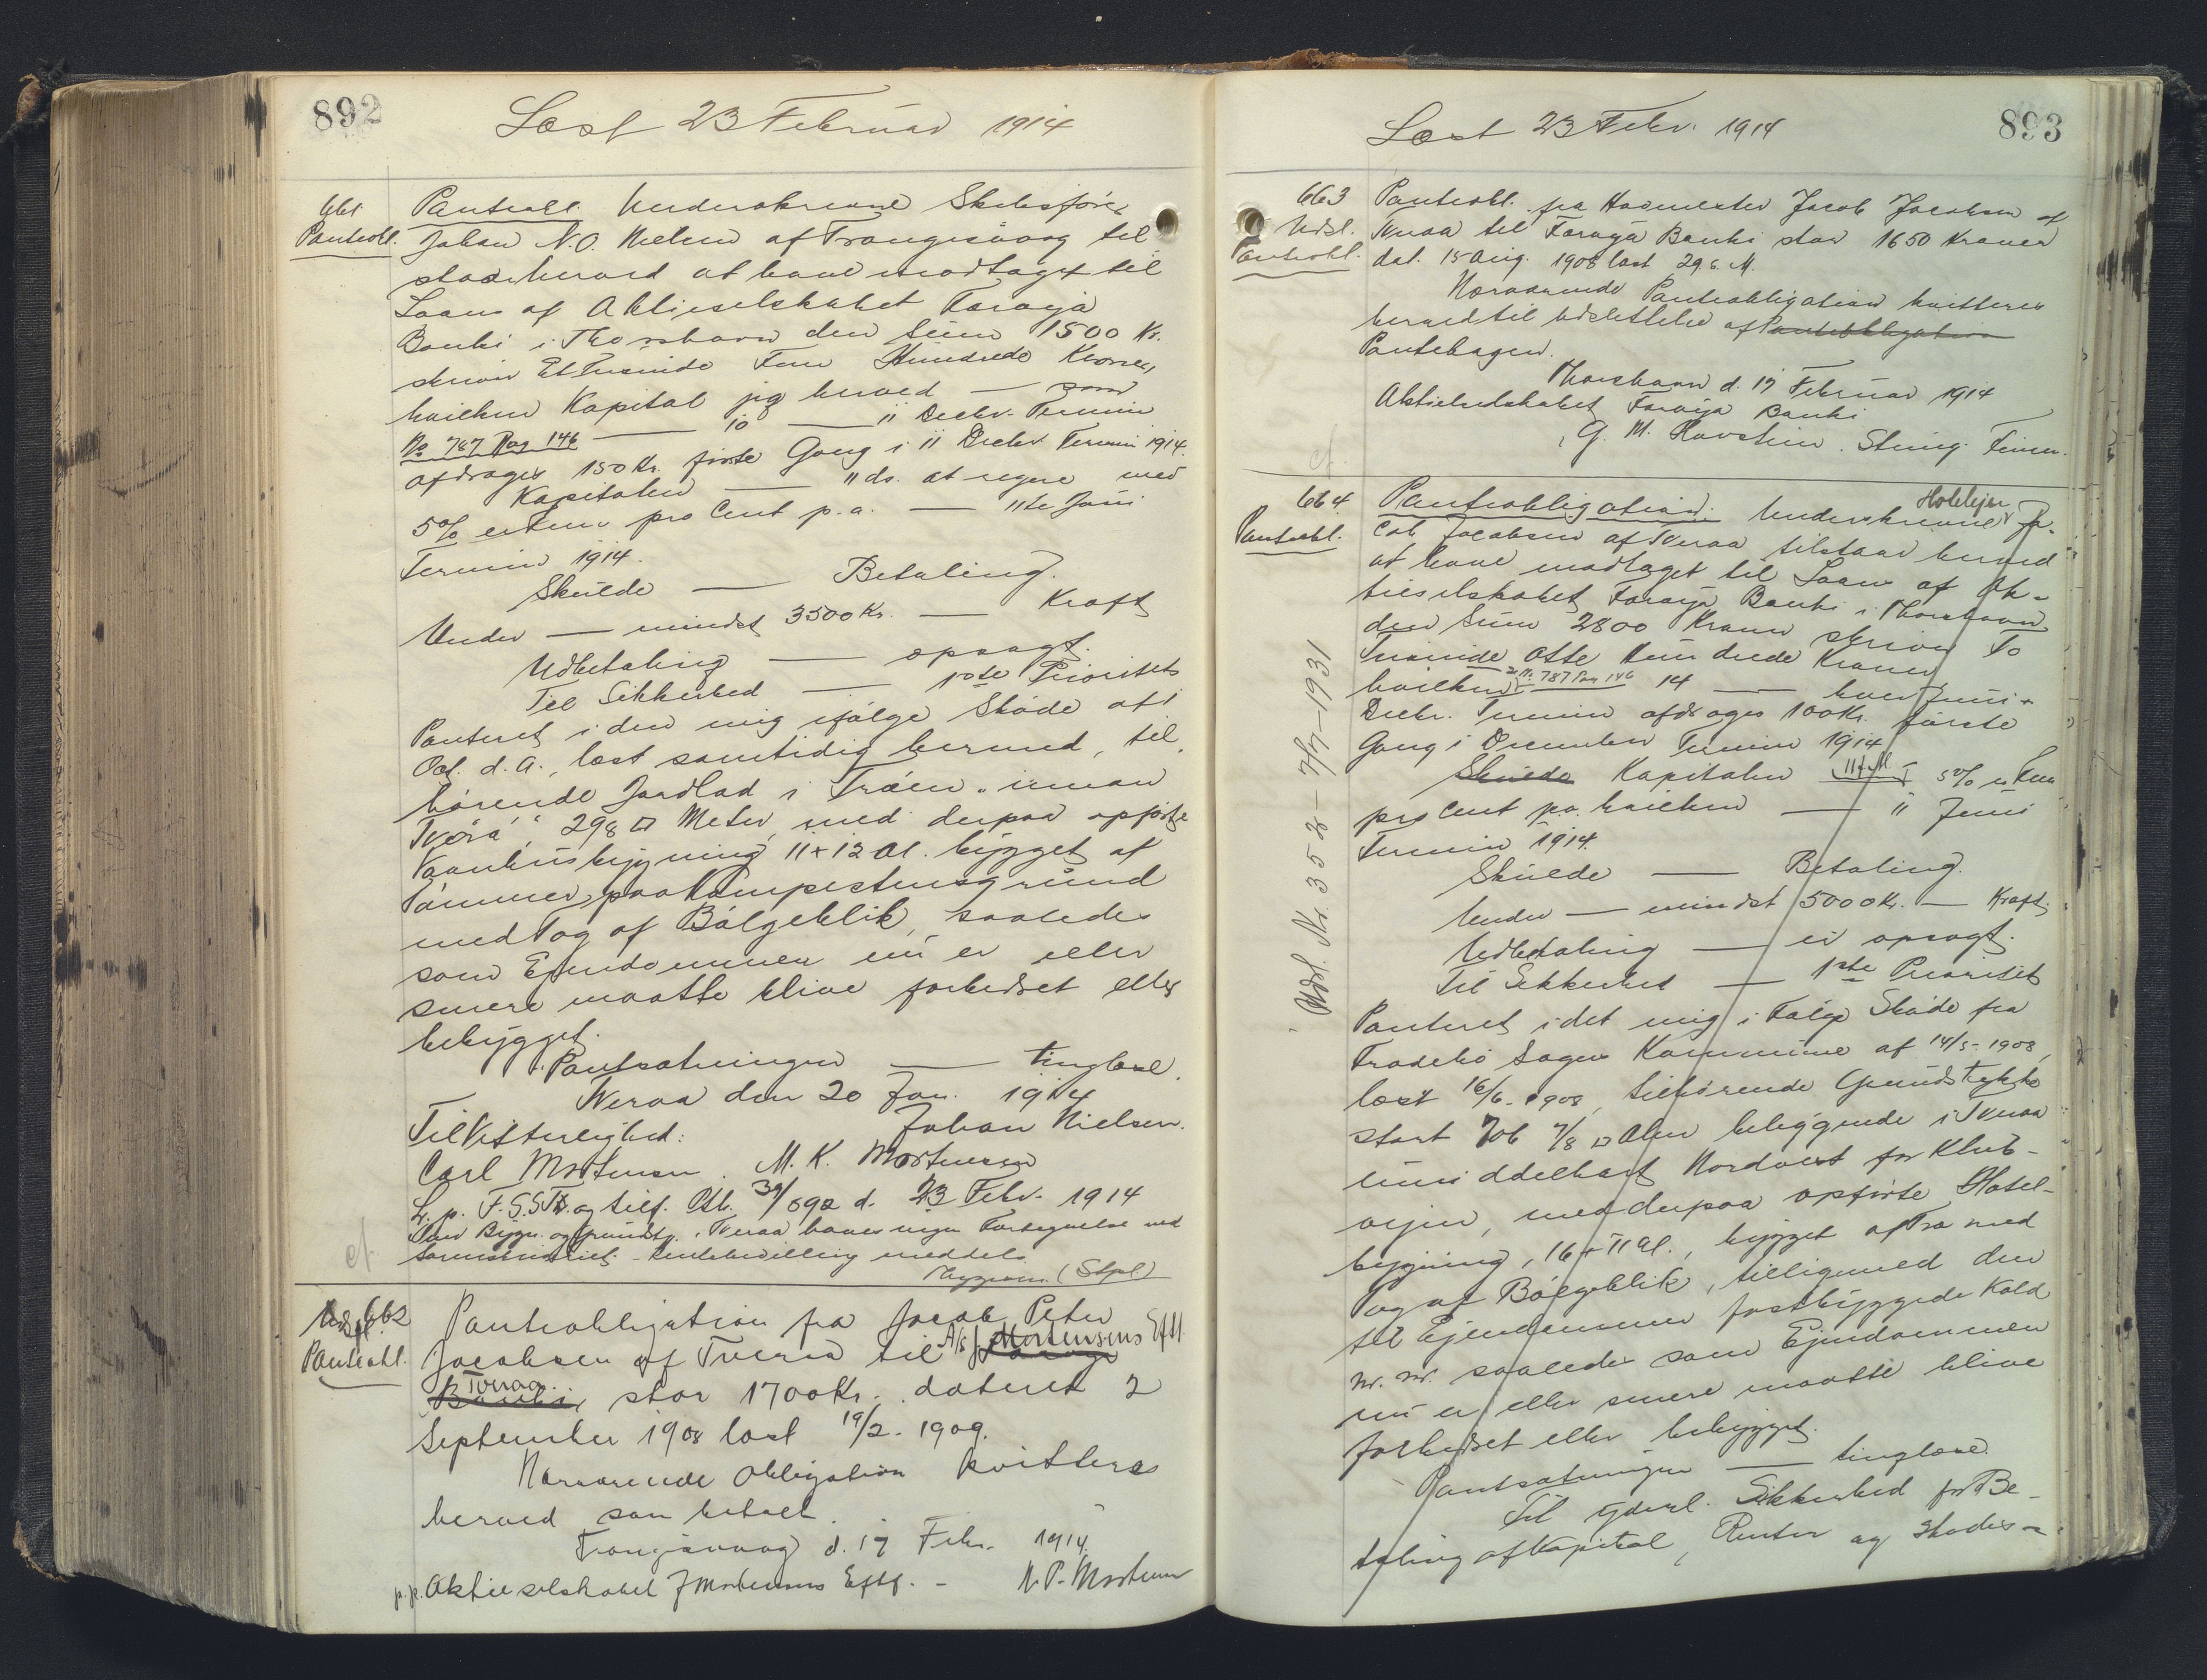 892
Læst 23 Februar 1914
661
Pantobl.
Pantobl. Underskrevne Skibsfører
Johan N.O. Nielsen af Trangisvaag til
staar herved at have modtaget til
Laans af Aktieselskabet Føroya
Banki i Thorshavn den Sum 1500 Kr.
skriver Et Tusinde Fem Hundrede Kroner,
hvilken Kapital jeg herved — som
No 787 Pag 146 — 10 — 11 Decbr. Termin
afdrages 150 Kr. første Gang i 11 Decbr Termin 1914.
Kapitalen — 11 ds. at regne med
5% er Fem pro Cent p.a. — 11te Juni
Termin 1914.
Skulde — Betaling.
Under — mindst 3500 Kr. — Kraft
Udbetaling — opsagt.
Til Sikkerhed — 1ste Prioritets
Panteret i den mig ifølge Skøde af 1
Oct. d. A., læst samtidig hermed, til
hørende Jordlod i Trøen "innan
Tvørá," 298 □ Meter, med derpaa opførte
Vaanhusbygning 11 x 12 Al. bygget af
Tømmer paa Kampestensgrund
med Tag af Bølgeblik, saaledes
som Ejendommen nu er eller
senere maatte blive forbedret eller
bebygget.
Pantsætningen — tinglæse.
Tveraa den 20 Jan. 1914
Til Vitterlighed: Johan Nielsen.
Carl Mortensen M. K. Mortensen
d. 23 Febr. 1914
cf.
662
Udsl.
Pantobl.
Pantobligation fra Jacob Peter
Jacobsen af Tveraa til A/S J. Mortensens Eftf.
Tveraa. Banki, stor 1700 Kr. dateret 2
September 1908 læst 19/2 - 1909.
Nærværende Obligation kvitteres
herved som betalt.
Trangisvaag d. 17 Febr. 1914.
p.p. Aktieselskabet J Mortensens Eftf. - N. P. Mortensen
893
Læst 23 Febr. 1914
663
Udsl.
Pantobl.
Pantobl. fra Havnmester Jacob Jacobsen af
Tveraa til Føroya Banki stor 1650 Kroner
dat. 15 Aug. 1908 læst 29 s. M.
Nærværende Pantobligation kvitteres
herved til Udslettelse af Pantobligation
Pantebogen.
Thorshavn d. 17 Februar 1914
Aktieselskabet Føroya Banki
cf.
664
Pantobl.
Udsl. Nr. 352 - 7/7 - 1931
Pantobligation. Underskrevne Hotelejer Ja-
cob Jacobsen af Tveraa tilstaar herved
at have modtaget til Laans af Ak-
tieselskabet Føroya Banki i Thorshavn
den Sum 2800 Kroner skriver To
Tusinde Otte Hundrede Kroner
hvilken No 787 Pag 146 14 — hver Juni-
Decbr. Termin afdrages 100 Kr. første
Gang i December Termin 1914
Skulde Kapitalen 11 d.M. 5% er Fem
pro Cent p.a. hvilken — 11 Juni
Termin 1914.
Skulde — Betaling.
Under — mindst 5000 Kr. — Kraft.
Udbetaling — er opsagt.
Til Sikkerhed — 1ste Prioritets
Panteret i det mig i Følge Skøde fra
Frodebø Sogns Kommune af 14/5 - 1908,
læst 16/6 - 1908, tilhørende Grundstykke
stort 706 7/8 □ Alen beliggende i Tveraa
umiddelbart Nordvest for Klub-
vejen, med derpaa opførte Hotel-
bygning, 16 x 11 Al., bygget af Træ med
Tag af Bølgeblik, tilligemed den
til Ejendommen fastbyggede Kald
m. m. saaledes som Ejendommen
nu er eller senere maatte blive
forbedret eller bebygget.
Pantsætningen — tinglæse.
Til yderl. Sikkerhed for Be-
taling af Kapital, Renter og Skades-